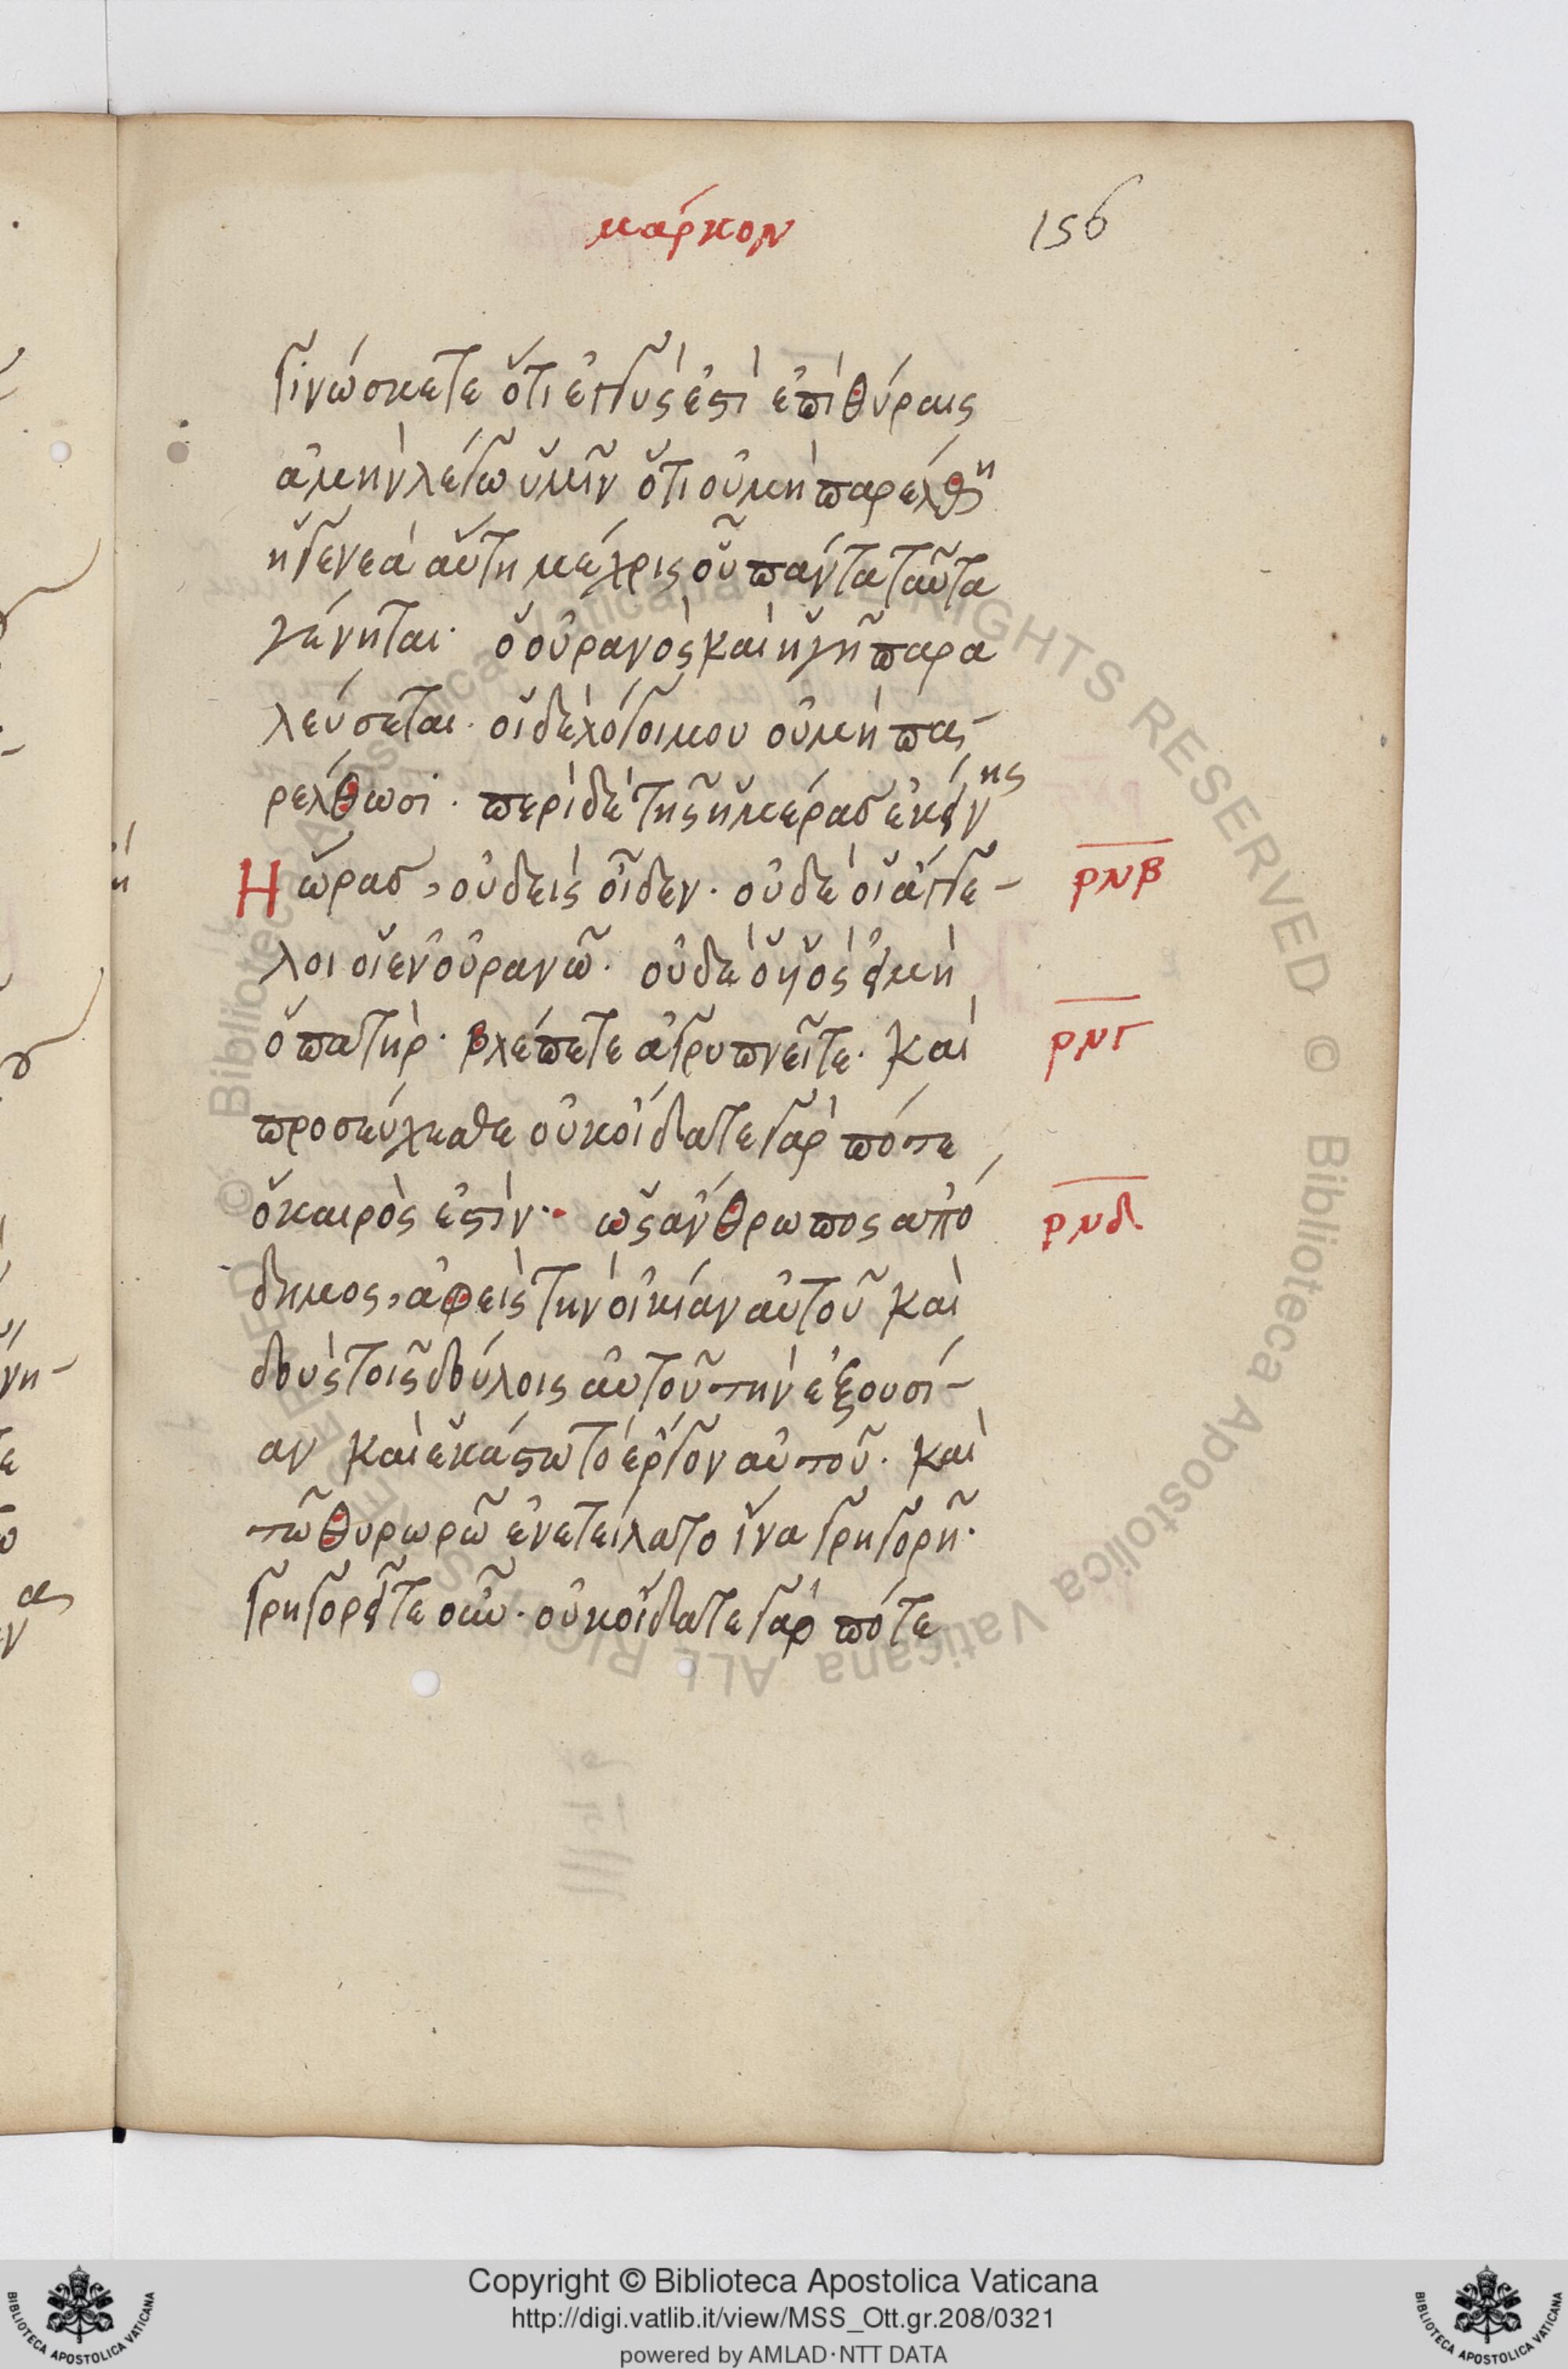 μάρκον 156
γινώσκετε ὅτι ἐγγύς ἐστὶ ἐπὶ θύραις
ἀμὴν λέγω ὑμῖν ὅτι οὐ μὴ παρέλθη
ἡ γενεὰ αὕτη μέχρις οὗ πάντα ταῦτα
γένηται· ὁ οὐρανὸς καὶ ἡ γῆ παρα
λεύσεται· οἱ δὲ λόγοι μου οὐ μὴ πα-
ρέλθωσι· περὶ δὲ τῆς ἡμέρας ἐκείνης
Ἢ ὥρας, οὐδεὶς οἶδεν· οὐδὲ οἱ ἄγγε- ρνβ
λοι οἱ ἐν οὐρανῶ· οὐδὲ ὁ υἱὸς εἰ μὴ
ὁ πατήρ· βλέπετε ἀγρυπνεῖτε· καὶ ρνγ
προσεύχεσθε οὐκ οἴδατε γὰρ πότε
ὁ καιρὸς ἐστὶν· ὡς ἄνθρωπος ἀπό ρνδ
δημος, ἀφεὶς τὴν οἰκίαν αὐτοῦ καὶ
δοὺς τοῖς δούλοις αὐτοῦ τὴν ἐξουσί-
αν καὶ ἑκάστω τὸ ἔργον αὐτοῦ· καὶ
τῶ θυρωρῶ ἐνετείλατο ἵνα γρηγορῆ·
γρηγορεῖτε οὖν· οὐκ οἴδατε γὰρ πότε
© Biblioteca Apostolica Vaticana ALL RIGHTS RESERVED
Copyright © Biblioteca Apostolica Vaticana
http://digi.vatlib.it/view/MSS_Ott.gr.208/0321
powered by AMLAD·NTT DATA
BIBLIOTECA APOSTOLICA VATICANA
BIBLIOTECA APOSTOLICA VATICANA